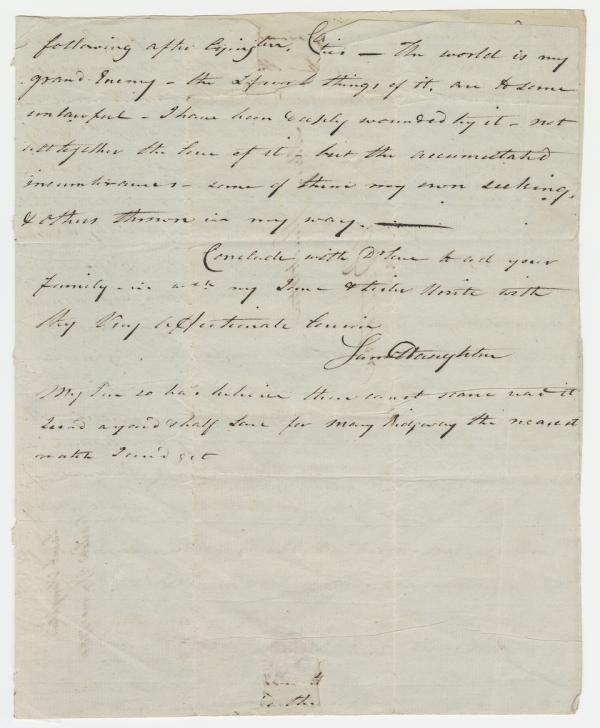 following after
The world is my
grand Enemy - the things of it, are to some
unlawful - I have been deeply wounded by it - not
altogether the love of it - but the accumulated
incumbrances - some of them my own seeking,
& others thrown in my way.
Conclude with Dr Love to all your
family - in wch my Jane & Unite with
thy Very Affectionate Cousin
My Pen so bad believe thou canst scarce read it
send a yard & half for Mary Ridgway the nearest
match I could get